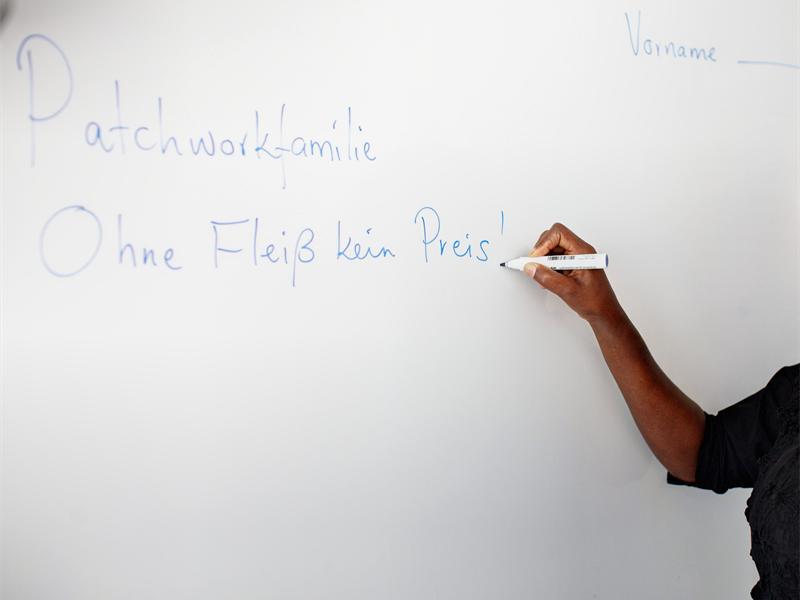 Vorname
Patchworkfamilie
Ohne Fleiß kein Preis!